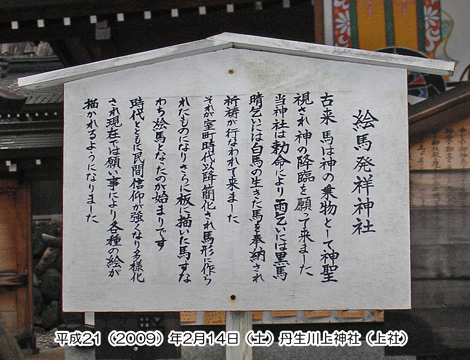 絵馬発祥神社
古来 馬は神の乗物として神聖
視され 神の降臨を願って来ました
当神社は勅命により雨乞いには黒馬
晴乞いには白馬の生きた馬を奉納され
祈祷が行なわれて来ました
それが室町時代以降簡化され馬形に作ら
れたものになりさらに板に描いた馬すな
わち絵馬となったのが始まりです
時代とともに民間信仰が強くなり多様化
され現在では願い事により各種の絵が
描かれるようになりました
平成21(2009)年2月14日(土)丹生川上神社(上社)